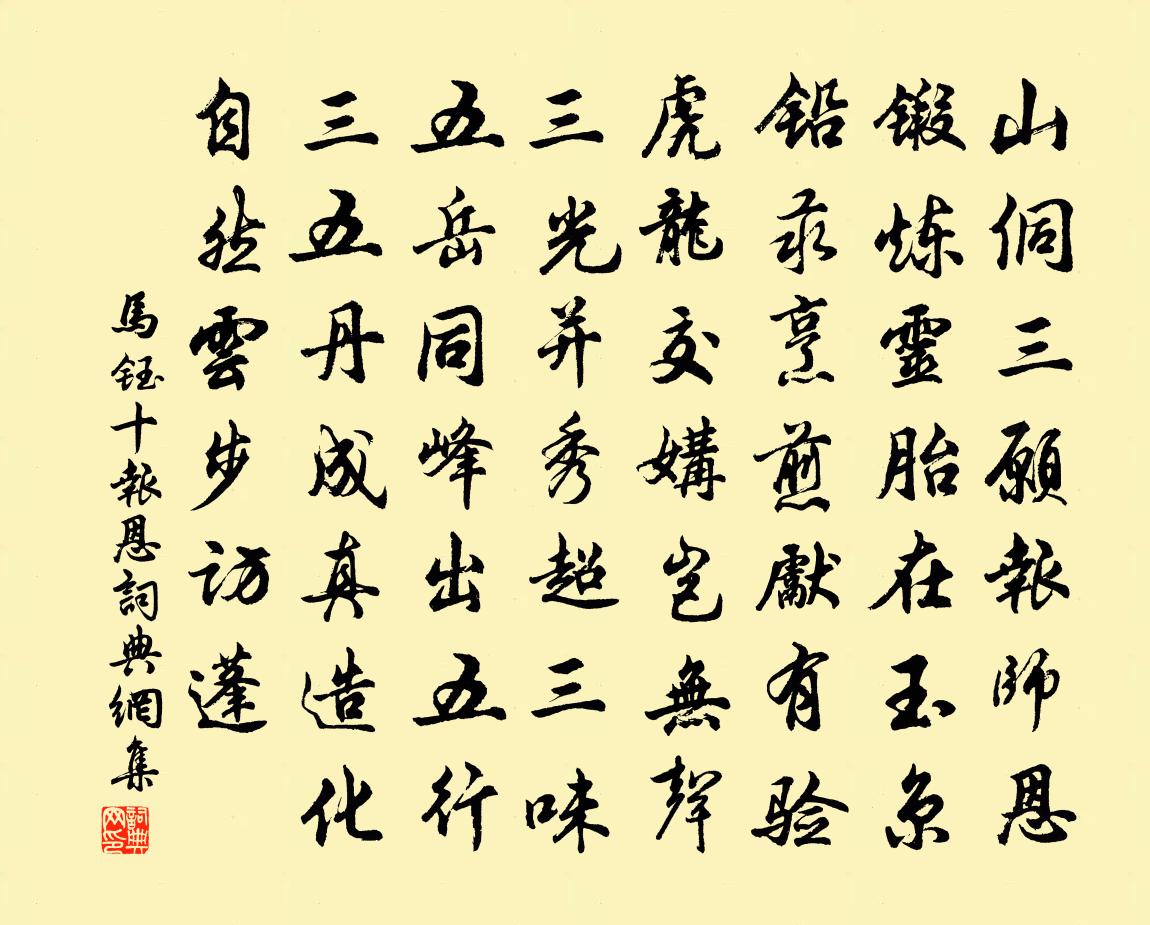 山侗三願報師恩
鍛炼靈胎在玉京
铅汞烹煎獻有验
虎龍交媾豈無聲
三光并秀超三味
五岳同峰出五行
三五丹成真造化
自然雲步访蓬
馬鈺十報恩詞典網集
詞典網印